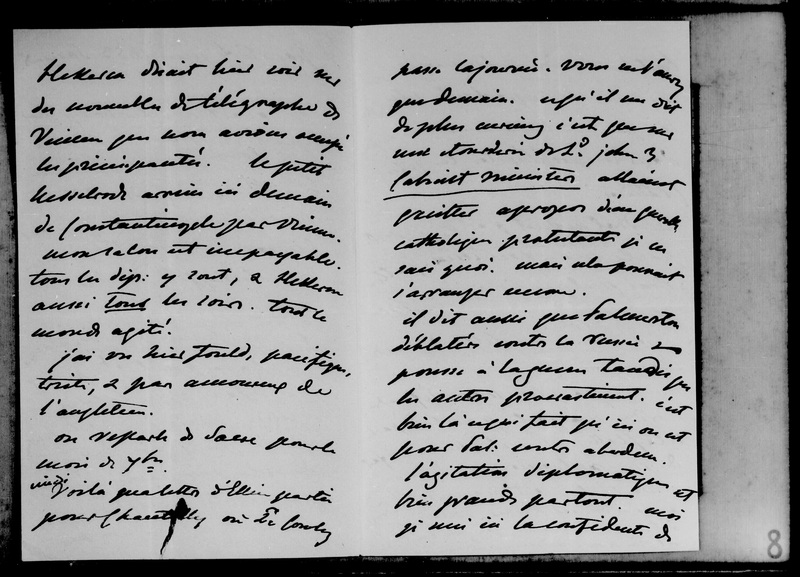 Hekeren disait hier soir sur
des nouvelles de télégraphe de
Vienne que nous avions occupé
les principautés. le petit
Nesselrode arrive ici demain
de Constantinople par Vienne.
mon salon est impayable.
tous les dip: y sont, & Hekeren
aussi tous les soirs. tout le
monde agité.
j'ai vu hier Fould, pacifique,
triste, & pas amoureux de
l'angleterre.
on reparle de Sacre pour le
mois de
Voilà partie
pour Chantilly où
passe la journée. Vous ne l'aurez
que demain. ce qu'il me dit
de plus curieux c'est que sur
une étourderie de Ld John 3
Cabinet ministers allaient
quitter apropos d'une querelle
catholiques protestants je ne
sais quoi. mais cela pouvait
s'arranger encore.
il dit aussi que Palmerston
déblatère contre la Russie &
pousse à la guerre tandis que
les autres c'est
bien là ce qui fait qu'ici on est
pour Pal: contre aberdeen.
l'agitation diplomatique est
bien grande partout. moi
je suis ici la confidente de
8